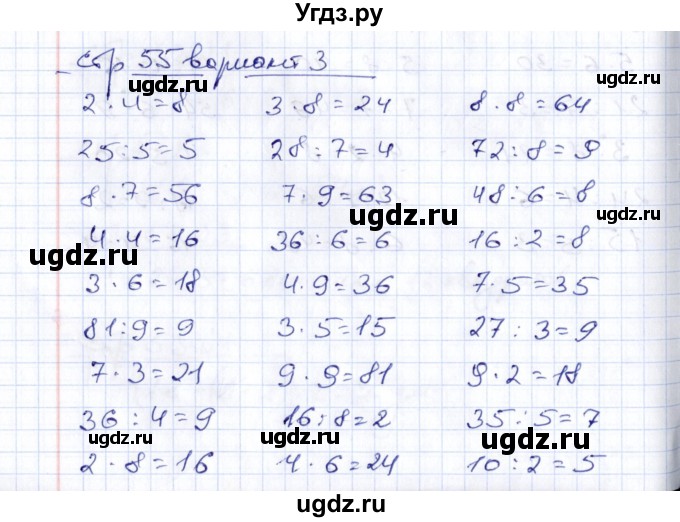 Угдз.ру
стр 55 вариант 3
ugdz.ru ugdz.ru
2 · 4 = 8 3 : 8 = 24 8 · 8 = 64
ugdz.ru
25 : 5 = 5 28 : 7 = 4 72 : 8 = 9
8 · 7 = 56 7 · 9 = 63 48 : 6 = 8
ugdz.ru ugdz.ru
4 · 4 = 16 36 : 6 = 6 16 : 2 = 8
ugdz.ru
3 · 6 = 18 4 · 9 = 36 7 · 5 = 35
81 : 9 = 9 3 · 5 = 15 27 : 3 = 9
ugdz.ru ugdz.ru
7 · 3 = 21 9 · 9 = 81 9 · 2 = 18
36 : 4 = 9 16 : 8 = 2 35 : 5 = 7
ugdz.ru ugdz.ru ugdz.ru
2 · 8 = 16 4 · 6 = 24 10 : 2 = 5
ugdz.ru ugdz.ru
ugdz.ru